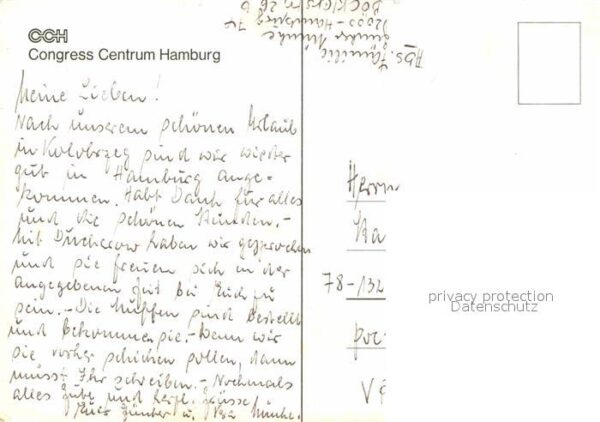 CCH
Congress Centrum Hamburg
Abs. Familie
Günter Münke
2000-Hamburg 74
Meine Lieben!
Nach unserem schönen Urlaub
in Kolobrzeg sind wir wieder
gut in Hamburg ange-
kommen. Habt Dank für alles
und die schönen Stunden.-
Mit Ducherow haben wir gesprochen
und sie freuen sich in der
angegebenen Zeit bei Euch zu
sein.- Die Muffen sind bestellt
und bekommen sie.- Wenn wir
sie vorher schicken sollen, dann
müsst Ihr schreiben.- Nochmals
alles Gute und herzl. Grüsse
Eure Günter u. Münke.
Herrn
78-132
privacy protection
Datenschutz